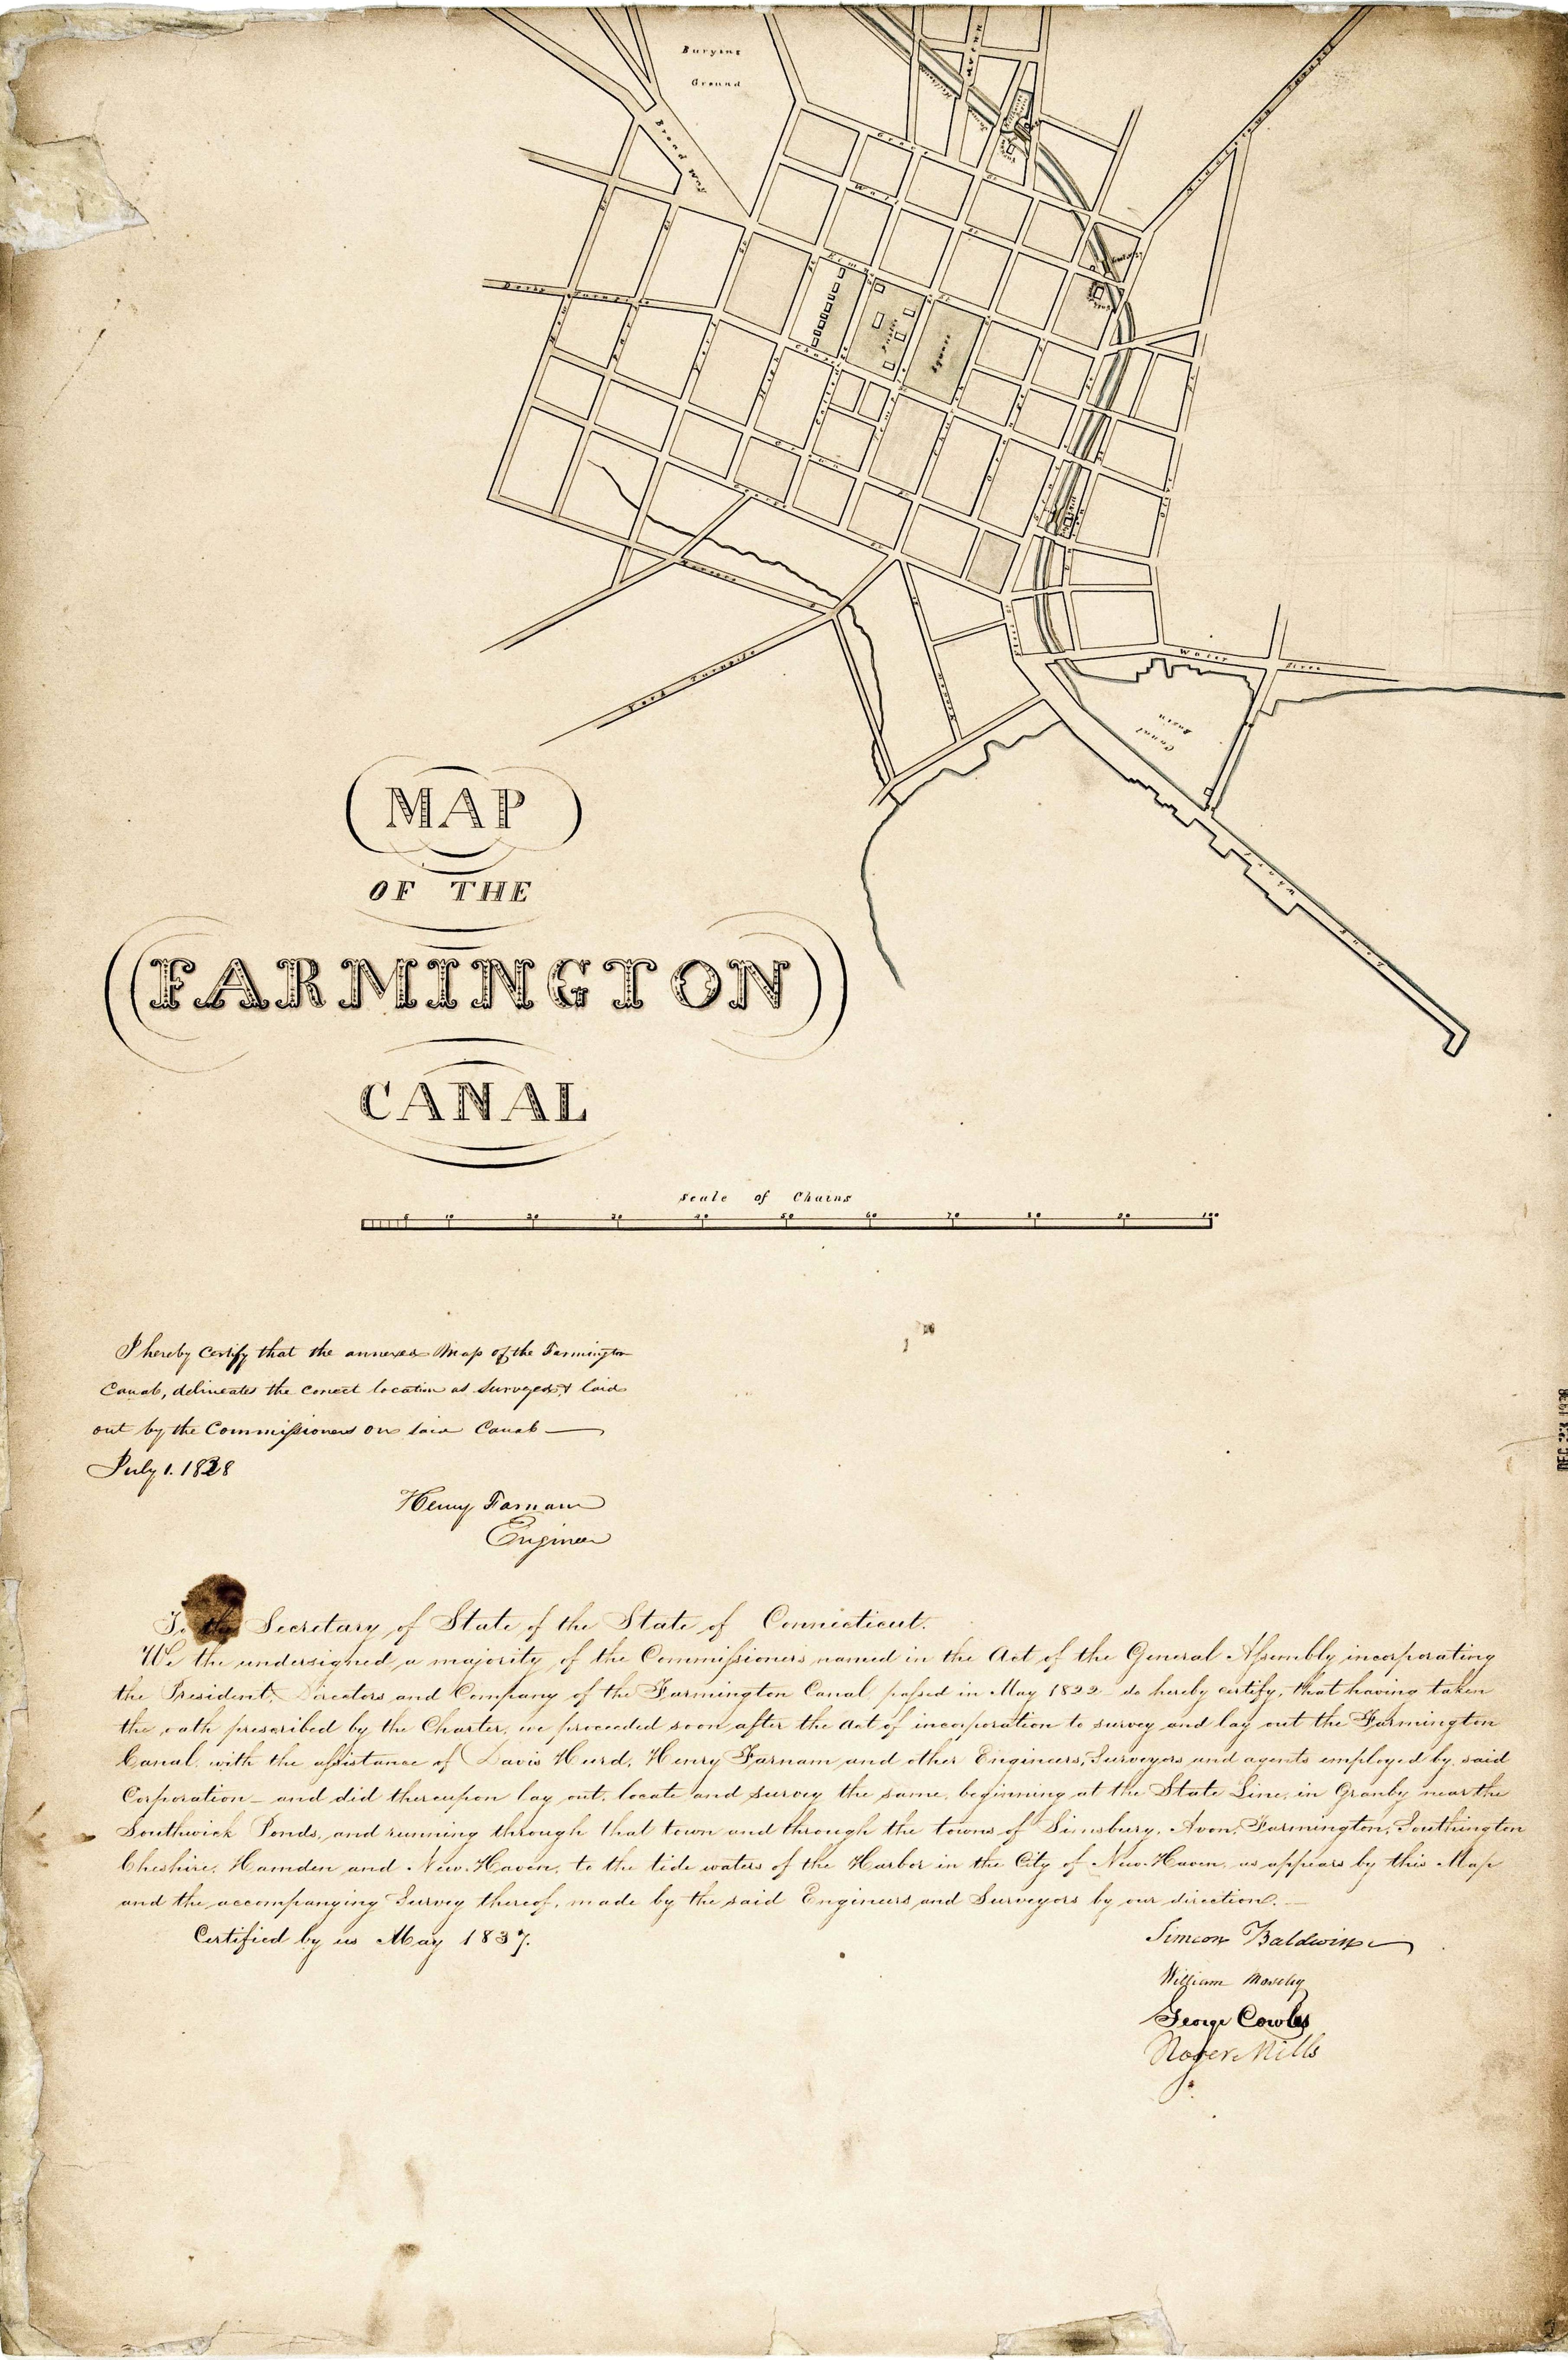 Burying
Ground
Broad Way
Grove
St
Wall
St
Elm
St
Derby Turnpike
Chapel
Public
Square
Crown
St
George
St
York Turnpike
Water
Street
Canal
Basin
Long
Wharf
MAP
OF THE
FARMINGTON
CANAL
Scale of Chains
5 10 20 30 40 50 60 70 80 90 100
I hereby certify that the annexed Map of the Farmington
Canal, delineates the correct location as surveyed & laid
out by the Commissioners on said Canal
July 1. 1828
Henry Farnam
Engineer
To the Secretary of State of the State of Connecticut.
We the undersigned a majority of the Commissioners named in the Act of the General Assembly incorporating
the President, Directors and Company of the Farmington Canal, passed in May 1822 do hereby certify, that having taken
the oath prescribed by the Charter, we proceeded soon after the act of incorporation to survey and lay out the Farmington
Canal, with the assistance of Davis Hurd, Henry Farnam and other Engineers, Surveyors and agents employed by said
Corporation – and did thereupon lay out, locate and survey the same, beginning at the State Line, in Granby near the
Southwick Ponds, and running through that town and through the towns of Simsbury, Avon, Farmington, Southington
Cheshire, Hamden and New-Haven, to the tide waters of the Harbor in the City of New-Haven, as appears by this Map
and the accompanying Survey thereof, made by the said Engineers and Surveyors by our direction.
Certified by us May 1837.
Simeon Baldwin
William Moseley
George Cowles
Roger Mills
DEC 23 1938